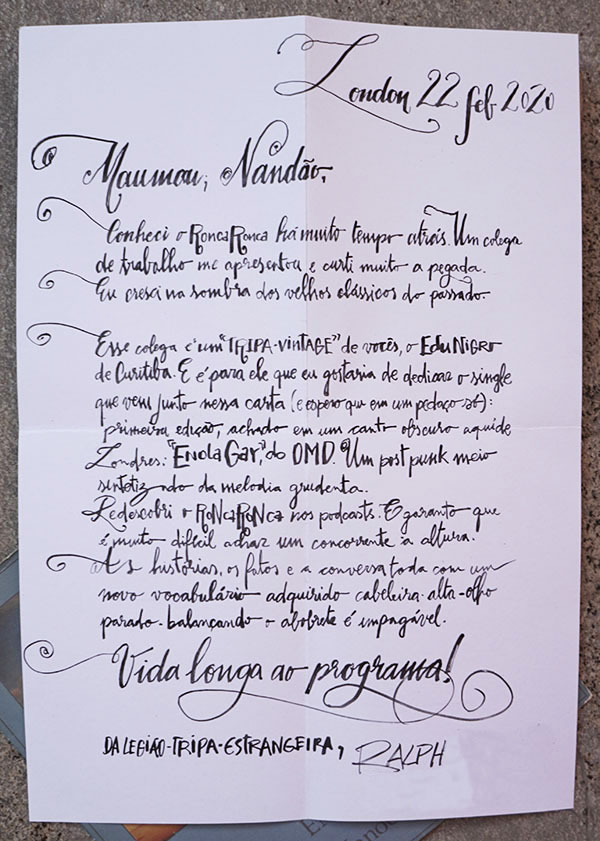 London 22 feb 2020
Maumau, Nandão,
Conheci o RoncaRonca há muito tempo atrás. Um colega
de trabalho me apresentou e curti muito a pegada.
Eu cresci na sombra dos velhos clássicos do passado.
Esse colega é um "TRIPA-VINTAGE" de vocês, o Edu NIGRO
de Curitiba. E é para ele que eu gostaria de dedicar o single
que vem junto nessa carta (e espero que em um pedaço só):
primeira edição, achado em um canto obscuro aqui de
Londres: "Enola Gay", do OMD. Um post punk meio
sintetizado da melodia grudenta.
Redescobri o RoNcaRoNca nos podcasts. E garanto que
é muito difícil achar um concorrente à altura.
As histórias, os fatos e a conversa toda com um
novo vocabulário adquirido cabeleira-alta-olho
parado-balançando o abobrete é impagável.
Vida longa ao programa!
DA LEGIÃO-TRIPA-ESTRANGEIRA, RALPH